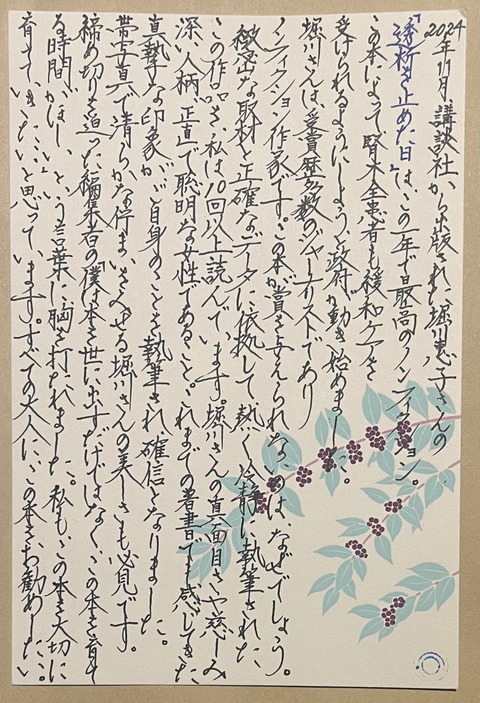 2024年11月、講談社から出版された堀川惠子さんの
「透析を止めた日」は、この一年で最高のノンフィクション。
この本によって腎不全患者も緩和ケアを
受けられるようにしようと政府が動き始めました。
堀川さんは、受賞歴多数のジャーナリストであり
ノンフィクション作家です。この本が賞を与えられないのは、なぜでしょう。
緻密な取材と正確なデータに依拠して、熱く、冷静に執筆された
この作品を、私は10回以上読んでいます。堀川さんの真面目さや慈しみ
深い人柄、正直で聡明な女性であること。これまでの著書でも感じてきた
真摯な印象が、ご自身のことを執筆され、確信となりました。
帯写真で清らかな佇まいをみせる堀川さんの美しさも必見です。
締め切りを迫った編集者の「僕は本を世に出すだけではなく、この本を育て
る時間がほしい」という言葉に胸を打たれました。私も、この本を大切に
育てていきたいと思っています。すべての大人に、この本をお勧めしたい。